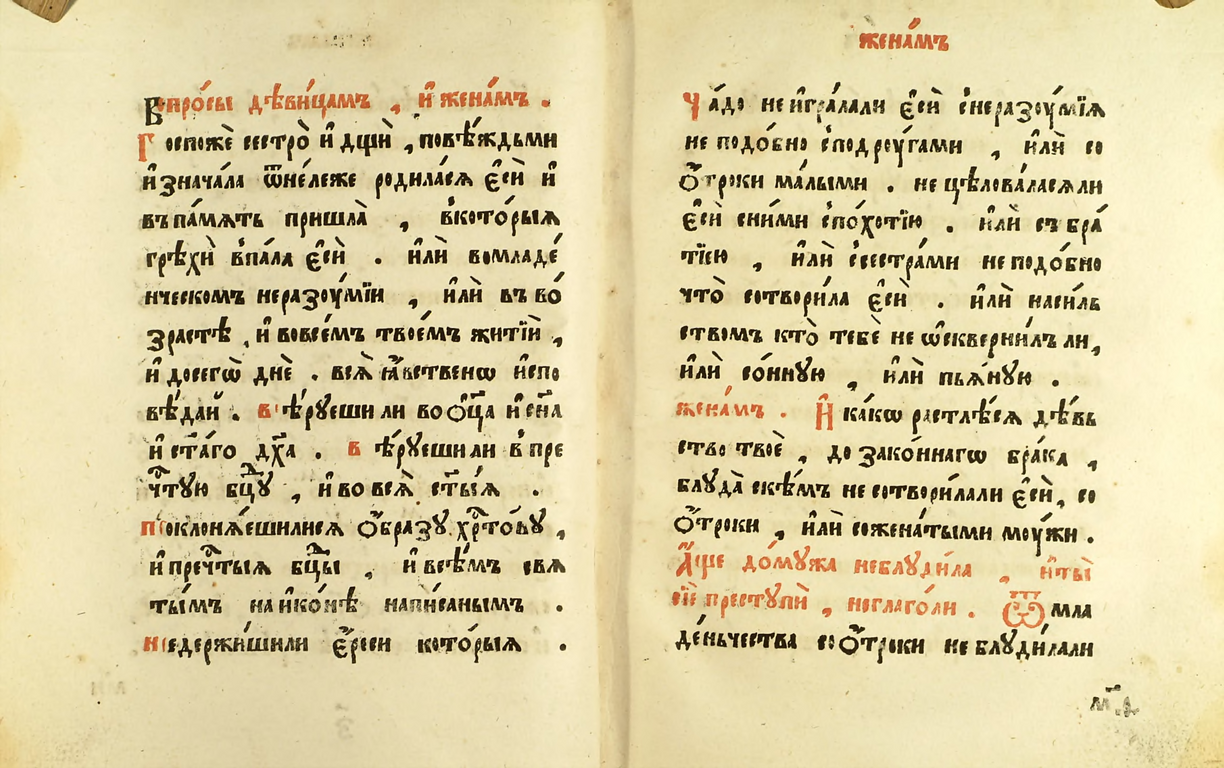 Вопро́сы дѣви́цамъ , и҆ жена́мъ .
Госпожѐ сестро̀ и҆ дщѝ , повѣ́ждьми
и҆знача́ла ѿне́лѣже роди́лася є҆сѝ и҆
въпа́мять пришла̀ , в҆кото́рыя
грѣхѝ в҆па́ла є҆сѝ . и҆лѝ вомладе́
ническомъ неразоу́мїи , и҆лѝ въ во́
зрастѣ , и҆ вовсе́мъ твое́мъ житїѝ ,
и҆ досегѡ̀ днѐ . всѧ̀ ꙗ҆́вственѡ и҆спо
вѣ́дай . вѣ́руеши ли во ѻ҆ц҃а и҆ сн҃а
и҆ ст҃а́го дх҃а . вѣ́руеши ли в҆ пре
чⷭ҇тую бцⷣу , и҆ во всѧ̀ ст҃ы́ѧ .
поклонѧ́ешилисѧ ѻ҆́бразу хрⷭ҇то́ву ,
и҆ пречⷭ҇тыѧ бцⷣы , и҆ всѣ́мъ свѧ
ты́мъ на и҆ко́нѣ напи́саньімъ .
недержи́шили є҆́реси кото́рыѧ .
жена́мъ
Ча́до не и҆гра́лали є҆сѝ с҆неразоу́мїѧ
не подо́бно с҆подроу́гами , и҆лѝ со
ѻ҆́троки ма́лыми . не цѣлова́ласѧли
є҆сѝ сни́ми с҆по́хотїю . и҆лѝ съ бра́
тїею , и҆лѝ с҆сестра́ми не подо́бно
что̀ сотвори́ла є҆сѝ . и҆лѝ наси́ль
ствомъ кто̀ тебѐ не ѡ҆скверни́лъ ли,
и҆лѝ со́нную , и҆лѝ пья́ную .
жена́мъ . И҆ ка́кѡ растлѣ́сѧ дѣ́вь
ство твоѐ , до зако́ннагѡ бра́ка ,
блуда̀ скѣ́мъ не сотвори́лали є҆сѝ, со
ѻ҆́троки , и҆лѝ сожена́тыми моу́жи .
А҆́ще до́мужа неблуди́ла , и҆ ты̀
сїѐ преступѝ , неглаго́ли . Ѿ мла
де́ньчества со ѻ҆́троки не блуди́лали